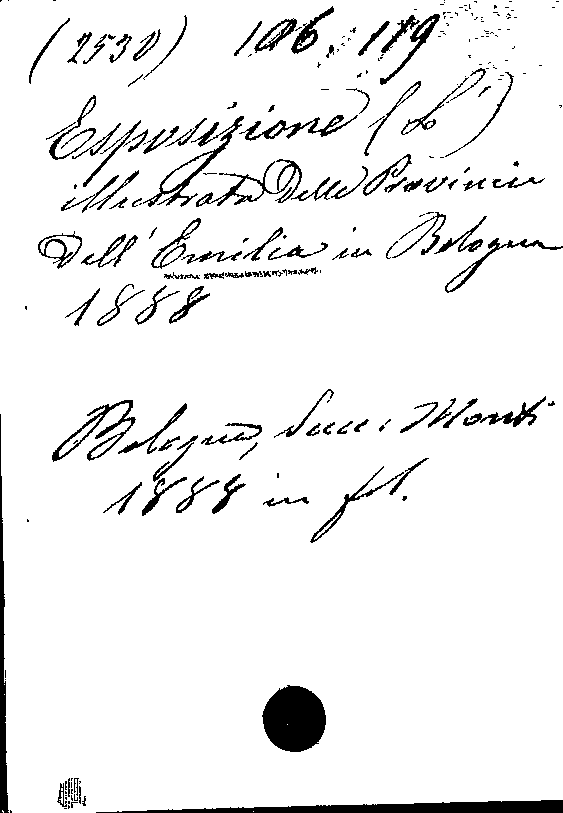 (2530) 106. 119
Esposizione (L')
illustrata delle Provincie
dell'Emilia in Bologna
1888
Bologna, Succ: Monti
1888 in fol.